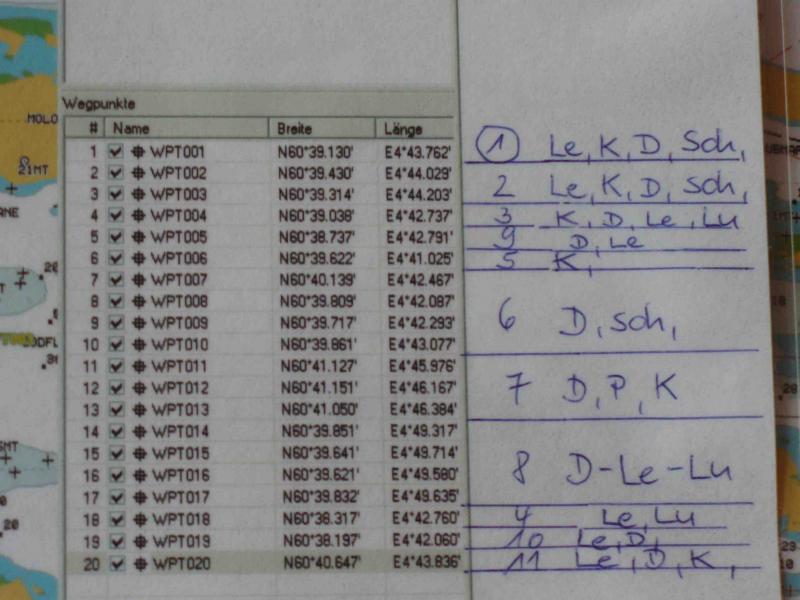 Wegpunkte
# Name Breite Länge
1 WPT001 N60°39.130' E4°43.762'
2 WPT002 N60°39.430' E4°44.029'
3 WPT003 N60°39.314' E4°44.203'
4 WPT004 N60°39.038' E4°42.737'
5 WPT005 N60°38.737' E4°42.791'
6 WPT006 N60°39.622' E4°41.025'
7 WPT007 N60°40.139' E4°42.467'
8 WPT008 N60°39.809' E4°42.087'
9 WPT009 N60°39.717' E4°42.293'
10 WPT010 N60°39.861' E4°43.077'
11 WPT011 N60°41.127' E4°45.976'
12 WPT012 N60°41.151' E4°46.167'
13 WPT013 N60°41.050' E4°46.384'
14 WPT014 N60°39.851' E4°49.317'
15 WPT015 N60°39.641' E4°49.714'
16 WPT016 N60°39.621' E4°49.580'
17 WPT017 N60°39.832' E4°49.635'
18 WPT018 N60°38.317' E4°42.760'
19 WPT019 N60°38.197' E4°42.060'
20 WPT020 N60°40.647' E4°43.836'
1 Le, K, D, Sch,
2 Le, K, D, Sch,
3 K, D, Le, Lu
9 D, Le
5 K,
6 D, Sch,
7 D, P, K
8 D-Le-Lu
4 Le, Lu
10 Le, D,
11 Le, D, K,
MOLO
21MT